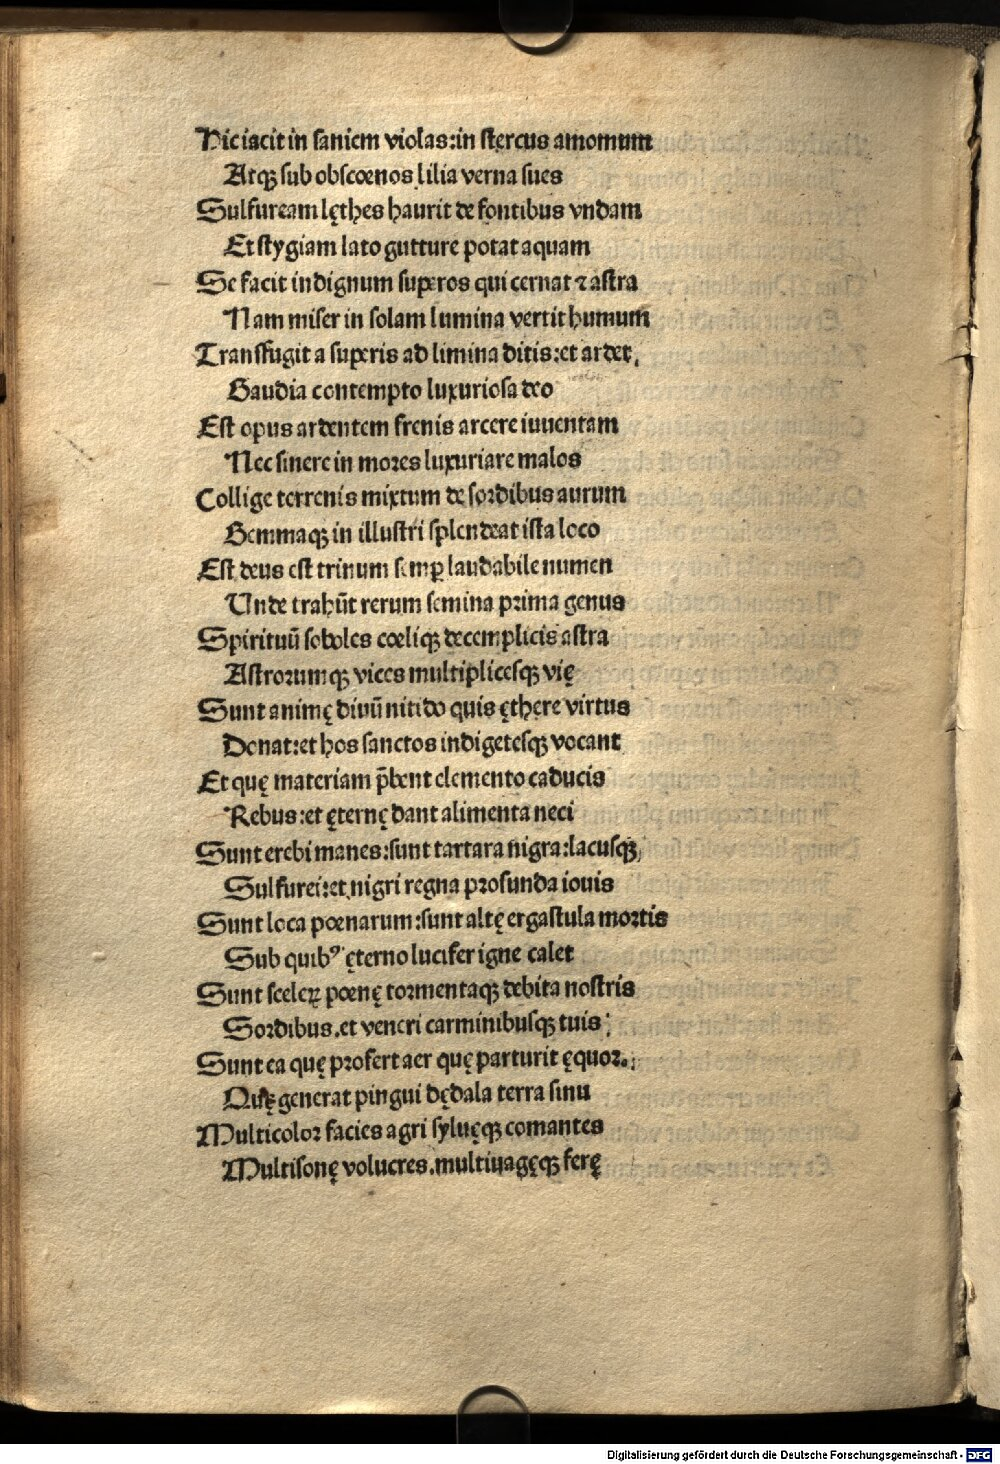 Hic iacit in saniem violas:in stercus amomum
Atqꝫ sub obscœnos lilia verna sues
Sulfuream lęthes haurit de fontibus vndam
Et stygiam lato gutture potat aquam
Se facit indignum superos qui cernat ⁊ astra
Nam miser in solam lumina vertit humum
Transfugit a superis ad limina ditis:et ardet.
Gaudia contempto luxuriosa deo
Est opus ardentem frenis arcere iuuentam
Nec sinere in mores luxuriare malos
Collige terrenis mixtum de sordibus aurum
Gemmaqꝫ in illustri splendeat ista loco
Est deus est trinum semꝑ laudabile numen
Unde trahūt rerum semina prima genus
Spirituū soboles cœliqꝫ decemplicis astra
Astrorumqꝫ vices multiplicesqꝫ vię
Sunt animę diuū nitido quis ęthere virtus
Donat:et hos sanctos indigetesqꝫ vocant
Et quę materiam p̄bent elemento caducis
Rebus:et ęternę dant alimenta neci
Sunt erebi manes:sunt tartara nigra:lacusqꝫ
Sulfurei:et nigri regna profunda iouis
Sunt loca pœnarum:sunt altę ergastula mortis
Sub quibꝰ ęterno lucifer igne calet
Sunt sceleꝝ pœnę tormentaqꝫ debita nostris
Sordibus.et veneri carminibusqꝫ tuis:
Sunt ea quę profert aer quę parturit ęquor.
Quęqꝫ generat pingui dędala terra sinu
Multicolor facies agri syluęqꝫ comantes
Multisonę volucres.multiuagęqꝫ ferę
Digitalisierung gefördert durch die Deutsche Forschungsgemeinschaft - DFG